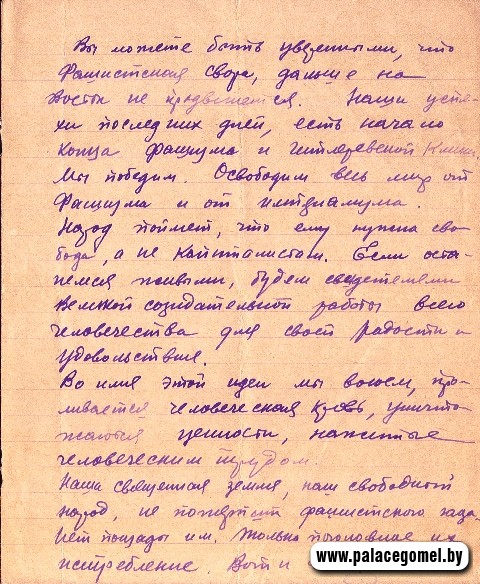 Вы можете быть уверенными, что
фашистская свора, дальше на
Восток не продвинется. Наши успе-
хи последних дней, есть начало
конца фашизма и гитлеровской клики.
Мы победим. Освободим весь мир от
Фашизма и от
Народ поймет, что ему нужна сво
бода, а не капиталистам. Если оста-
немся живыми, будем свидетелями
великой созидательной работы всего
человечества для своей радости и
удовольствия.
Во имя этой идеи мы воюем, про-
ливается человеческая кровь, уничто
жаются ценности, нажитые
человеческим трудом.
Наша священная земля, наш свободный
народ, не фашистского
Нет пощады им. Только поголовное их
истребление. Вот и
www.palacegomel.by